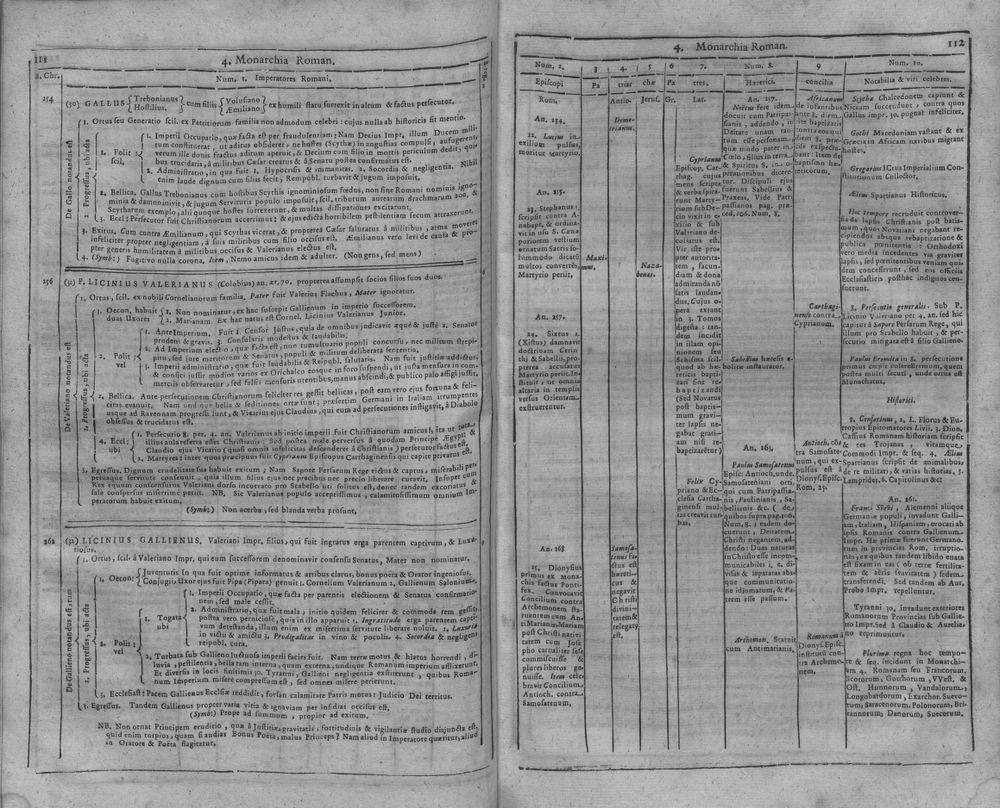 111
4. Monarchia Roman.
a. Chr.
Num. 1. Imperatores Romani.
254
(50) GALLUS { Trebonianus Hostilius. } cum filiis { Volusiano Æmiliano } ex humili statu surrexit in altum & factus persecutor.
De Gallo notandus est
1. Ortus seu Generatio scil. ex Petitiorum familia non admodum celebri: cujus nulla ab historicis fit mentio.
2. Progressus, ubi acta
1. Polit: scil,
1. Imperii Occupatio, quæ facta est per fraudulentiam; Nam Decius Impr, illum Ducem militum constituerat, ut aditus obsideret, ne hostes (Scythæ) in angustias compulsi, aufugerent,
verum ille donis fractus aditum aperuit, & Decium cum filio in mortis periculum dedit; quibus trucidatis, à militibus Cæsar creatus & à Senatu postea confirmatus est.
2. Administratio, in qua fuit 1. Hypocrisis & immanitas. 2. Socordia & negligentia. Nihil
enim laude dignum cum filiis fecit, Rempubl. turbavit & jugum imposuit.
2. Bellica. Gallus Trebonianus cum hostibus Scythis ignominiosum fœdus, non sine Romani nominis ignominia & damno inivit, & jugum Servitutis populo imposuit, scil, tributum aurearum drachmarum 200, &
Scytharum exemplo, alii quoque hostes surrexerunt, & multas dissipationes excitarunt.
3. Eccl: Persecutor fuit Christianorum acerrimus; & ejus edicta horribilem pestilentiam secum attraxerunt.
3. Exitus, Cum contra Æmilianum, qui Scythas vicerat, & propterea Cæsar salutatus à militibus, arma moveret
infeliciter propter negligentiam, à suis militibus cum filio occisus est. Æmilianus vero
pter generis humilitatem à militibus occisus & Valerianus electus est.
4. (Symb:) Fugitivo nulla corona, Item, Nemo amicus idem & adulter. (Non gens, sed mens)
256
(51) P. LICINIUS VALERIANUS (Colobius) an. æt. 70. propterea assumpsit socios filios suos duos.
De Valeriano notandus est
1. Ortus, scil. ex nobili Cornelianorum familia, Pater fuit Valerius Flachus, Mater ignoratur.
2. Progressus, ubi acta
1. Oecon, habuit duas Uxores
1. Non nominatur, ex hac suscepit Gallienum in imperio successorem.
2. Marianam. Ex hac natus est Cornel. Licinius Valerianus Junior.
2. Polit; vel
1. Ante Imperium. Fuit 1. Censor Justus, quia de omnibus judicavit æquè & justè 2. Senator
prudens & gravis. 3. Consularis modestus & laudabilis;
2. Ad Imperium electio, quæ facta est, non tumultuario populi concursu, nec militum strepitu, sed jure meritorum & Senatus, populi & militum deliberata sententia,
3. Imperii administratio, quæ fuit laudabilis & Reipubl. salutaris. Nam fuit justitiæ addictus,
& confici jussit modios varios ex Orichalco eosque in foro suspendi, ut justa mensura in commerciis observaretur, sed falsis mensuris utentibus, manus abscindi, & publico palo affigi jussit,
2. Bellica. Ante persecutionem Christianorum feliciter res gessit bellicas, post eam vero ejus fortuna & felicitas evanuit. Nam undique bella & seditiones ortæ sunt; præsertim Germani in Italiam irrumpentes
usque ad Ravennam progressi sunt, & Vicarius ejus Claudius, qui eum ad persecutiones instigavit, à Diabolo
obsessus & trucidatus est.
4. Eccl: ubi
1. Persecutio 8. per. 4. an. Valerianus ab initio imperii fuit Christianorum amicus, ita ut tota
illius aula referta esset Christianis; Sed postea male perversus à quodam Principe Ægypt: &
Claudio ejus Vicario (quasi omnis infelicitas descenderet à Christianis) persecutor factus est.
2. Martyres: inter quos præcipuus fuit Cyprianus Episcopus Carthaginensis qui capite privatus est.
3. Egressus. Dignum crudelitate sua habuit exitum; Nam Sapore Persarum Rege victus & captus, miserabili perpetuaque servitute consenuit, quia illum filius ejus nec precibus nec precio liberare curavit, Insuper cum
Rex equum conscensurus Valeriani dorso incurvato pro Scabello uti solitus est, donec tandem excoriatus &
sale conspersus miserrime periit. NB. Sic Valerianus populo acceptissimus, calamitosissimum omnium Imperatorum habuit exitum.
(Symb:) Non acerba, sed blanda verba prosunt,
262
(52) LICINIUS GALLIENUS, Valeriani Impr, filius, qui fuit ingratus erga parentem captivum, & Luxuriosus.
De Gallieno notandus est, remn
1. Ortus, scil. à Valeriano Impr. qui eum successorem denominavit consensu Senatus, Mater non nominatur.
2. Progressus, ubi acta
1. Oecon: { Juventutis In qua fuit optime informatus & artibus clarus, bonus poeta & Orator ingeniosus.
Conjugii. Uxor ejus fuit Pipa (Pipara) genuit 1. Cornelium Valerianum 2. Gallienum Saloninum.
2. Polit: vel
1. Togata ubi
1. Imperii Occupatio, quæ facta per parentis electionem & Senatus confirmationem, sed male cessit.
2. Administratio, quæ fuit mala, initio quidem feliciter & commode rem gessit,
postea vero perniciose, quia in illo apparuit 1. Ingratitudo erga parentem captivum detestanda, illum enim ex miserrima servitute liberare noluit. 2. Luxuria
in victu & amictu 3. Prodigalitas in vino & poculis. 4. Socordia & negligens
reipubl. cura.
2. Turbata sub Gallieno luctuosa imperii facies fuit. Nam terræ motus & hiatus horrendi, diluvia, pestilentia, bella tam interna, quam externa, undique Romanum imperium afflixerunt.
Et diversis in locis sintismis 30. Tyranni, Gallieni negligentia exstiterunt, quibus Romanum Imperium misere compressum est, sed omnes misere perierunt.
3. Ecclesiast: Pacem Gallienus Ecclsiæ reddidit, forsan calamitate Patris motus: Judicio Dei territus.
3. Egressus. Tandem Gallienus propter varia vitia & ignaviam per insidias occisus est.
(Symb:) Prope ad summum, propior ad exitum.
NB. Non ornat Principem eruditio, qua à Justitiæ, gravitatis, fortitudinis & vigilantiæ studio disjuncta est,
quid enim turpius, quam si audias Bonus Poëta, malus Princeps? Nam aliud in Imperatore quæritur, aliud
in Oratore & Poëta flagitatur.
4. Monarchia Roman.
112
Num. 2.
3
4.
5
6
7.
Num. 8.
9
Num. 10.
Episcopi
Pa
triar
chæ
Pa
tres,
Hæretici.
concilia
Notabilia & viri celebres.
Rom.
Antio.
Jerus.
Gr.
Lat.
An. 254.
22. Lucius in
exilium pulsus,
moritur Martyrio.
An. 255.
23. Stephanus.
scripsit contra Anabapt. & ordinavit in usu S. Cœnæ
puriorem vestium
ornatum Sacris summodo dicatum
multos convertēs,
Martyrio periit,
An. 257.
24. Sixtus 2.
(Xistus) damnavit
doctrinam Cerinthi & Sabellii, propterea accusatus
Martyrio periit. Instituit, ut omnia
altaria in templis
versus Orientem
exstruerentur.
An. 268
25, Dionysius
primus ex monachis factus Pontifex. Convocavit
Concilium contra
Archemonem statuentem cum Anti Marianis, Mariam
post Christi nativitatem cum Josepho carnaliter sese
commiscuisse &
plures liberos genuisse. Item celebravit Concilium
Antioch. contra
Samosatenum,
Maximus,
Demetrianus.
Samosatenus factus est
hæreticus &
negavit
Christi
divinitatem &
relegatus
est.
Nazabanus.
Cyprianus
Episcop, Carthag. clemens scriptis
& verbis spirarunt Martyrium sub Decio vixit in exilio & sub
Valeriano decolatus est.
Vir iste propter autoritatem, facundiam & dona
admiranda nō
satis laudandus, Cujus opera extant
in 3. Tomos
digesta: tandem incidit
in illam opinionem seu
Schisma scil.
quod ab hæreticis baptizati sint rebaptizandi
(Sed Novatus
post baptismum graviter lapsis negabat gratiam nisi rebaptizarētur)
Felix Cypriano & Ecclesia Carthaginensi multas creavit turbas.
An. 257.
Noëtus fere idem
docuit cum Patripassianis, addendo, in
Deitate unam tantum esse personam,
quæ modo pater in
Cœlo, filius in terra
& Spiritus S. in operationibus diceretur. Discipuli ejus
fuerunt Sabellius &
Praxeas, Vide Patripassianos pag. præced. 106. Num, 8.
Sabellius hæresis abolitæ instauratur.
An. 263.
Paulus Samosatenus
Episc: Antioch. unde
Samosateniani orti.
qui cum Patripassianis, Paulinianis, Sabellianis &c. (de
quibus supra pag. 106.
Num, 8.) eadem docuerunt, Deitatem
Christi negantem, addendo: Duas naturas
in Christo esse incommunicabiles i. e. divisas & separatas absque communicatione idiomatum, & Patrem esse passum.
Archemon, Statuit
cum Antimarianis,
Africanum
de infantibus
ante 8. diem,
res baptizatis
contra eos qui
diem 8. præcisè exspectabant: Item de
baptismo hæreticorum.
Carthaginense contra
Cyprianum.
Antioch, cōtra Samosatenum, qui expulsus est à
Dionys, Episc:
Rom. 25.
Romanum à
Dionys, Episc.
institutū contra Archemonem.
Scythæ Chalcedonem capiunt &
Niceam succendunt, contra quos
Gallus impr. 30. pugnat infeliciter.
Gothi Macedoniam vastant & ex
Græcia in Africam navibus migrant
hostes.
Gregorius ICtus Imperialium Constitutionum Collector.
Ælius Spartianus Historicus.
Hoc tempore recruduit controversia de lapsis Christianis post baptismum, quos Novatiani negabant recipiendos absque rebaptizatione &
publica pœnitentia: Orthodoxi
vero media incedentes via graviter
lapsis, sed pœnitentibus veniam quidem concesserunt, sed eos officiis
Ecclesiasticis posthac indignos censuerunt;
8. Persecutio generalis. Sub P.
Licinio Valeriano per 4. an. sed hic
capitur à Sapore Persarum Rege, qui
illum pro Scabello habuit, & persecutio mitigata est à filio Gallieno.
Paulus Eremita in 8. persecutione
primus cœpit colere Eremum, quem
postea multi secuti, unde ortus est
Monachatus.
Historici.
1. Censorinus, 2. L. Florus & Eutropius Epitomatores Livii, 3. Dion,
Cassius Romanam historiam scripsit
res Trojanas, vitamque
Commodi Impr. & seq. 4. Ælius
Spartianus scripsit de animalibus,
de re militari, & varias historias, 5.
Lamprides. 6. Capitolinus &c:
An. 261.
Franci Suevi, Alemanni aliique
Germaniæ populi, invadunt Galliam, Italiam, Hispaniam, evocati ab
ipsis Romanis contra Gallienum
Impr. Hæ primæ fuerunt Germanorum in provincias Rom, irruptiones, ex quibus tandem libido enata
est suam in eas (ob terræ fertilitatem & aëris suavitatem) sedem
transferendi. Sed tandem ab Aur,
Probo Impr. repelluntur.
Tyranni 30, invadunt exteriores
Romanorum Provincias sub Gallieno Impr. Sed à Claudio & Aureliano reprimuntur.
Plurima regna hoc tempore & seq. incidunt in Monarchiam 4. Romanam seu Francorum,
Scotorum, Gothorum, VVest. &
Ost. Hunnorum, Vandalorum,
Longobardorum, Exarchor. Suevorum, Saracenorum, Polonorum, Britannorum, Danorum, Suecorum,